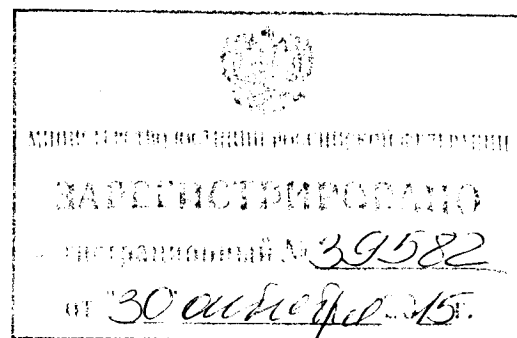 МИНИСТЕРСТВО ЮСТИЦИИ РОССИЙСКОЙ ФЕДЕРАЦИИ
ЗАРЕГИСТРИРОВАНО
Регистрационный № 39582
от "30" октября 2015.